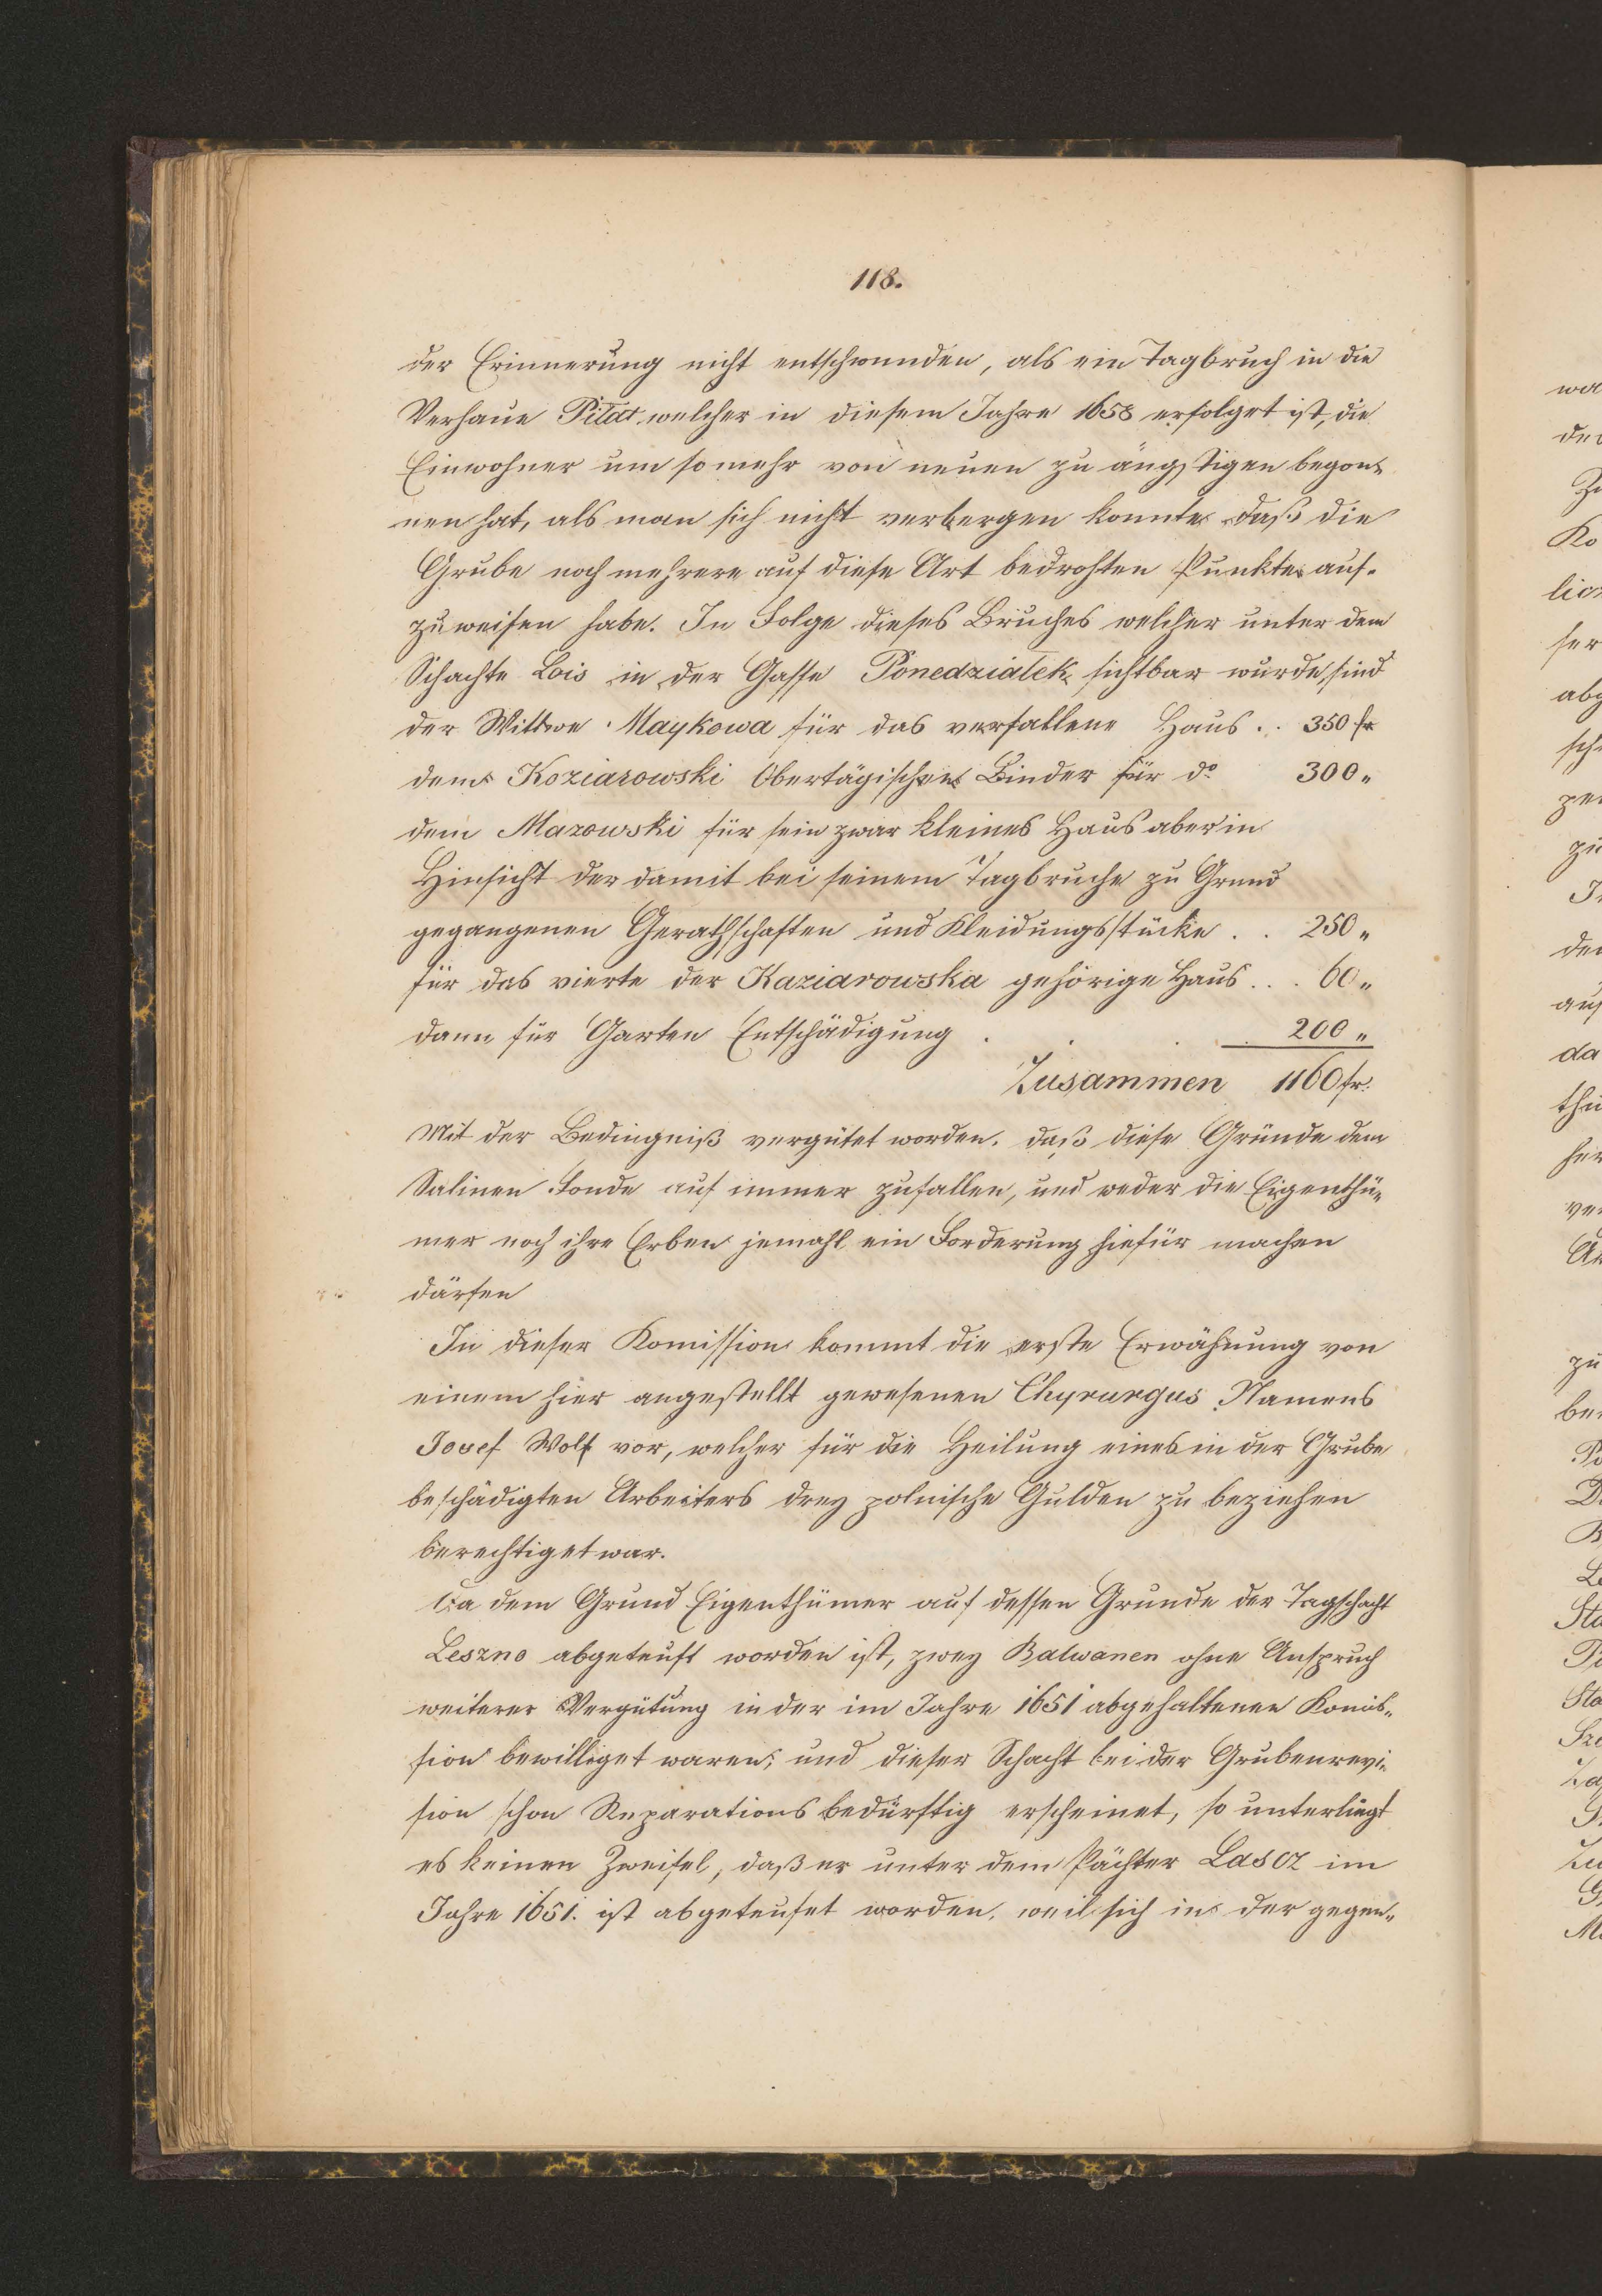 118.
der Erinnerung nicht entschwunden, als ein Tagbruch in die
Verhaue Pitat welcher in diesem Jahre 1658 erfolget ist, die
Einwohner um so mehr von neuen zu ängstigen begon-
nen hat, als man sich nicht verbergen konnte daß die
Grube noch mehrere auf diese Art bedrohten Punkte auf-
zuweisen habe. In Folge dieses Bruches welcher unter dem
Schachte Lois in der Gasse Ponedzialek sichtbar wurde, sind
der Wittwe Maykowa für das verfallene Haus . . 350 fr
dem Koziarowski Obertägischen Binder für do 300 "
dem Mazowski für sein zwar kleines Haus aber in
Hinsicht der damit bei seinem Tagbruche zu Grund
gegangenen Gerathschaften und Kleidungsstücke . . 250 "
für das vierte der Kaziarowska gehörige Haus . . . 60 "
dann für Garten Entschädigung . . . 200 "
Zusammen 1160 fr.
Mit der Bedingniß vergütet worden. daß diese Gründe dem
Salinen Fonde auf immer zufallen, und weder die Eigenthü-
mer noch ihre Erben jemahl ein Forderung hiefür machen
därfen
In dieser Komission kommt die erste Erwähnung von
einem hier angestellt gewesenen Chyrurgus Namens
Josef Wolf vor, welcher für die Heilung eines in der Grube
beschädigten Arbeiters drey polnische Gulden zu beziehen
berechtiget war.
Da dem Grund Eigenthümer auf dessen Grunde der Tagschacht
Leszno abgeteuft worden ist, zwey Balwanen ohne Anspruch
weiterer Vergütung in der im Jahre 1651 abgehaltenen Komis-
sion bewilliget waren; und dieser Schacht bei der Grubenrevi-
sion schon Reparations bedürftig erscheinet, so unterliegt
es keinen Zweifel, daß er unter dem Pächter Lascz im
Jahre 1651. ist abgeteufet worden. weil sich in der gegen-